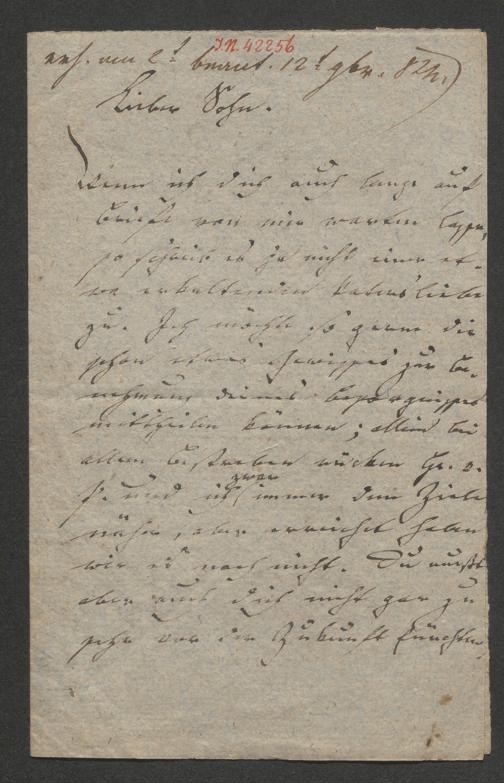 I.N. 42256
erh. am 2t beant. 12t 9br. 824.
Lieber Sohn.
Wenn ich dich auch lange auf
Briefe von mir warten lasse,
so schreib es ja nicht einer et-
wa erkaltenden Vatersliebe
zu. Ich möchte so gerne dir
schon etwas Gewisses zur Be-
nehmung deines Besorgnisses
mittheilen können; allein bei
allem Bestreben rücken Hr. v.
S. und ich zwar immer dem Ziele
näher, aber erreicht haben
wir es noch nicht. Du mußt
aber auch dich nicht gar zu
sehr vor der Zukunft fürchten